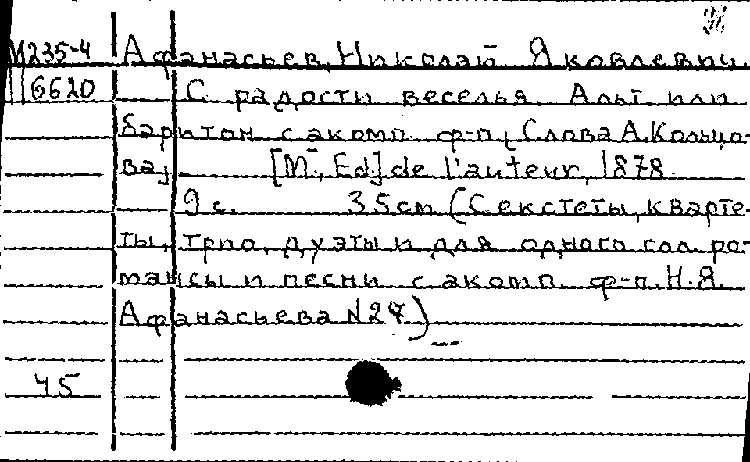 М235-4 Афанасьев, Николай Яковлевич.
116620 С радости веселья. Альт или
баритон с акомп. ф-п. (Слова А. Кольцо-
ва) [М., Ed] de l'auteur, 1878.
9 с. 35см (Секстеты, кварте-
ты, трио, дуэты и для одного гол. ро-
мансы и песни с акомп. ф-п. Н.Я.
Афанасьева №27)
45